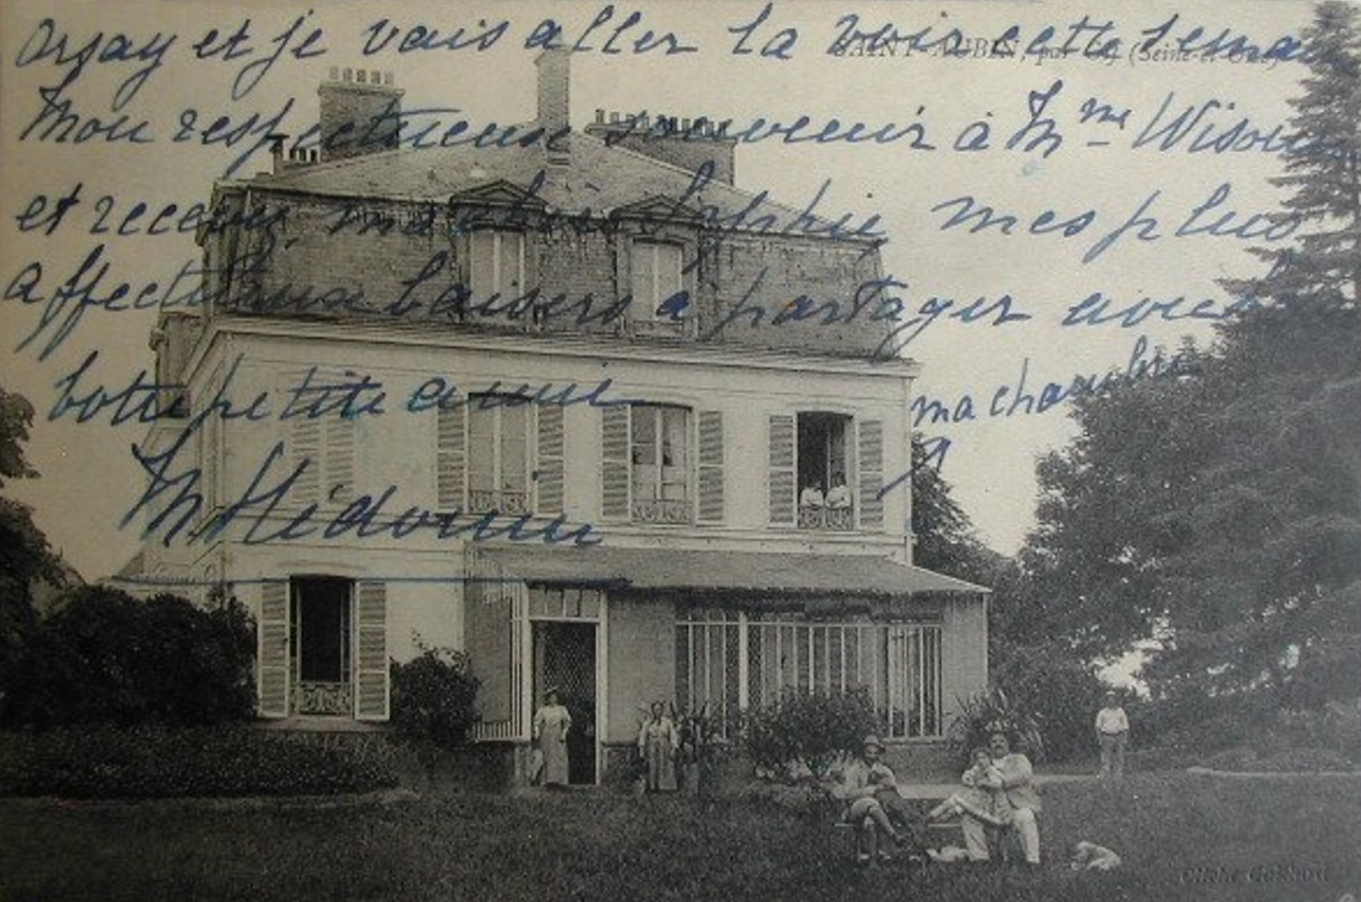 Orsay et je vais aller la voir cette sema
SAINT-AUBIN, par Gif (Seine-et-Oise)
Mon respectueux souvenir à Mme
et recevez, ma chère Sophie mes plus
affectueux baisers à partager avec
votre petite amie
ma chambre
Cliché